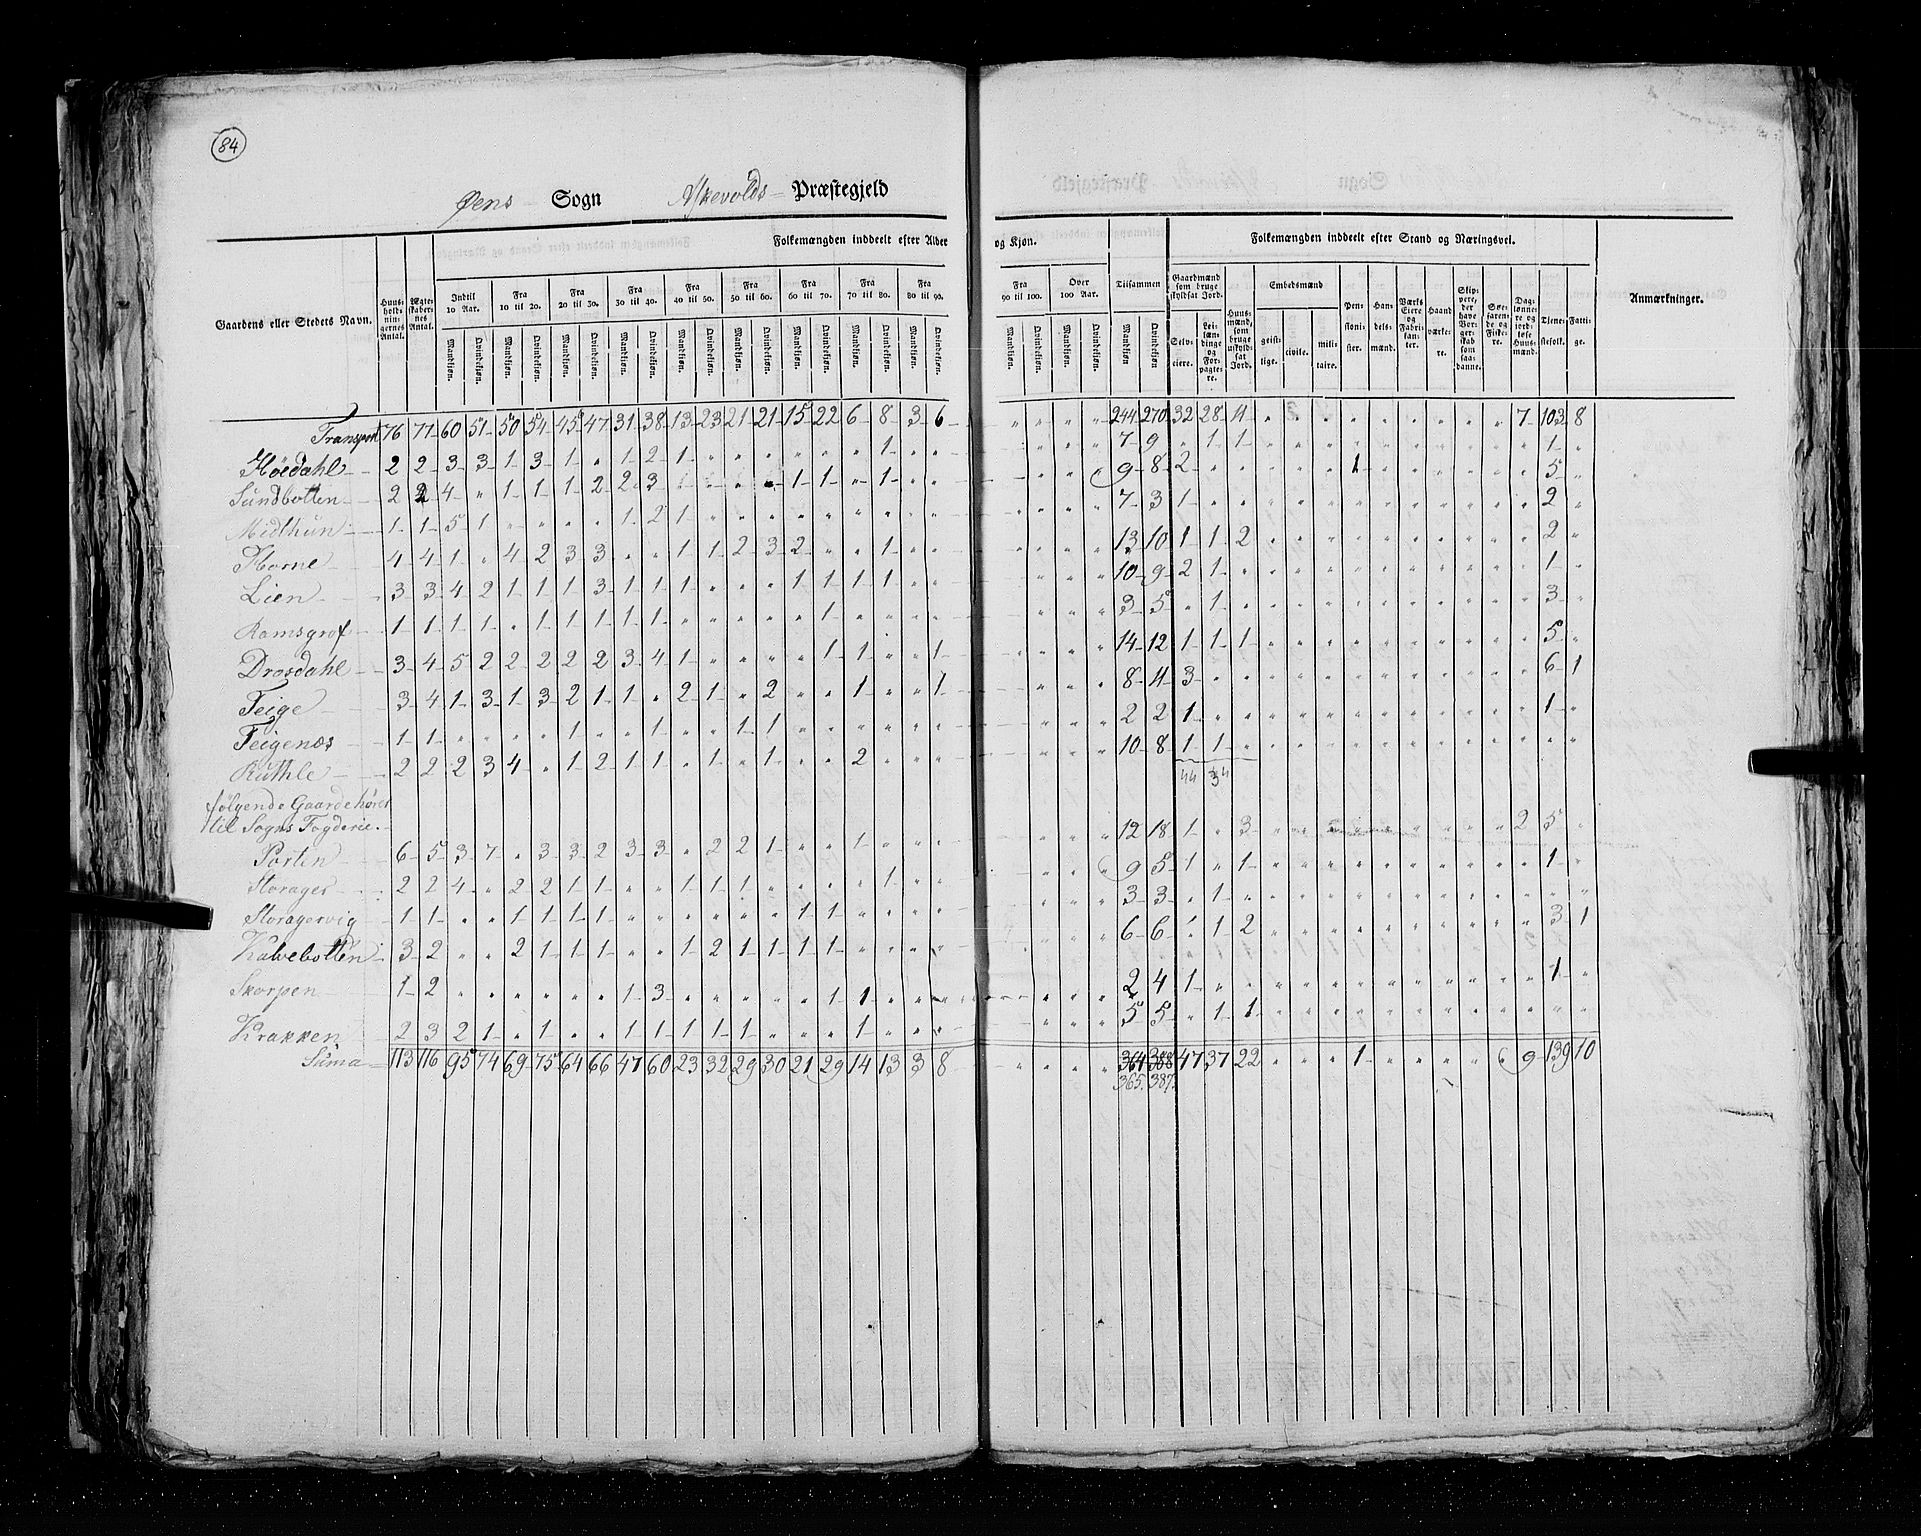 84
Øens Sogn Askevolds Præstegjeld
Gaardens eller Stedets Navn. Huusholdningernes Antal. Ægteskabernes Antal. Folkemængden inddeelt efter Alder og Kjøn. Tilsammen Folkemængden inddeelt efter Stand og Næringsvei. Anmærkninger.
Indtil 10 Aar. Fra 10 til 20. Fra 20 til 30. Fra 30 til 40. Fra 40 til 50. Fra 50 til 60. Fra 60 til 70. Fra 70 til 80. Fra 80 til 90. Fra 90 til 100. Over 100 Aar.
Gaardmænd som bruge skyldsat Jord. Huusmænd, som bruge uskyldsat Jord. Embedsmænd Pensionister. Handelsmænd. Værks Eiere og Fabrikanter. Haandværkere. Skippere, der have Borgerskab som saadanne. Søefarende og Fiskere. Daglønnere og jordløse Huusmænd. Tjenestefolk. Fattige.
Mandkjøn. Qvindekjøn. Selveiere. Leilændinge og Forpagtere. geistlige. civile. militaire.
Transport 76 77 60 51 50 54 45 47 31 38 13 23 21 21 15 22 6 8 3 6 244 270 32 28 11 7 103 8
Höedahl 2 2 3 3 1 3 1 " 1 2 1 " " " " " " 1 " " 7 9 " 1 1 1
Sundbotten 2 2 4 " 1 1 1 2 2 3 1 1 " 1 9 8 2 1 5
Midthun 1 1 5 1 " " " " 1 2 1 7 3 1 2
Horne 4 4 1 " 4 2 3 3 " " 1 1 2 3 2 " " 1 13 10 1 1 2 2
Lien 3 3 4 2 1 1 1 3 1 1 1 " " " 1 1 1 1 10 9 2 1 1
Ramsgrof 1 1 1 1 " 1 1 1 1 1 " " " " " 1 3 5 " 1 3
Drosdahl 3 4 5 2 2 2 2 2 3 4 1 " " " " 1 1 " " 1 14 12 1 1 1 5
Feige 3 4 1 3 1 3 2 1 1 " 2 1 " 2 " " 1 " " 1 8 11 3 6 1
Feigenæs 1 1 " " " " 1 " " 1 " " 1 1 2 2 1 1
Ruthle 2 2 2 3 4 " 1 2 1 1 " 1 " 1 " " 2 10 8 1 1
44 34
følgende Gaarde hører
til Sogns Fogderie.
Porten 6 5 3 7 " 3 3 2 3 3 " 2 2 1 " " 1 12 18 1 " 3 2 5
Storager 2 2 4 " 2 2 1 1 " " 1 1 1 " " " " 1 9 5 1 " 1 1
Storagervig 1 1 " " 1 1 1 1 " " " " " " 1 1 3 3 " 1
Kalvebotten 3 2 " " 2 1 1 1 " " 1 2 1 1 1 1 6 6 " 1 2 3 1
Skorpen 1 2 " " " " " " 1 3 " " " " " 1 1 2 4 1 1
Krakken 2 3 2 1 " 1 " " 1 1 1 1 1 " " " 1 5 5 " 1 1
Suma 113 116 95 74 69 75 64 66 47 60 23 32 29 30 21 29 14 13 3 8 364 388 47 37 22 1 9 139 10
365. 387.